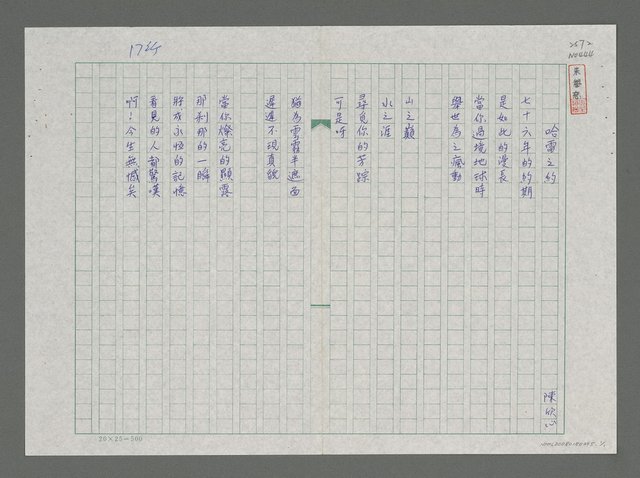 17行
2572
No444
哈雷之約
陳欣心
七十六年的約期
是如此的漫長
當你過境地球時
舉世為之瘋動
山之巔
水之涯
尋覓你的芳踪
可是呀
猶為雲霞半遮面
遲遲不現真貌
當你燦亮的顯露
那剎那的一瞬
貯成永恆的記憶
看見的人都驚嘆
啊！今生無憾矣
20×25=500